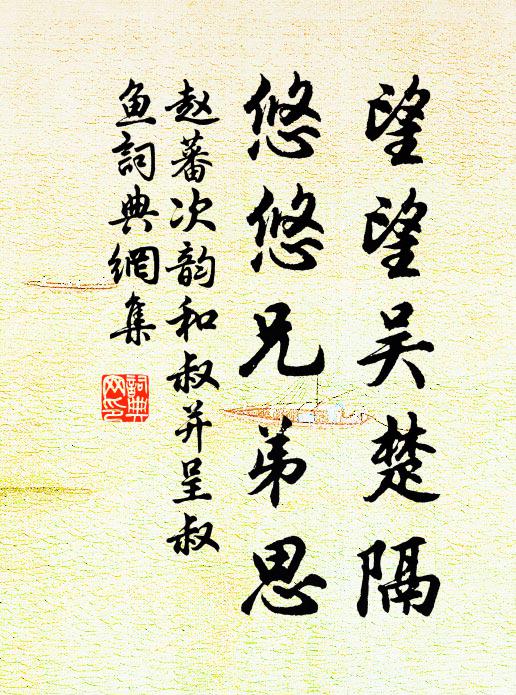 望望吴楚隔
悠悠兄弟思
赵蕃次韵和叔并呈叔
鱼詞典網集
詞典
网印